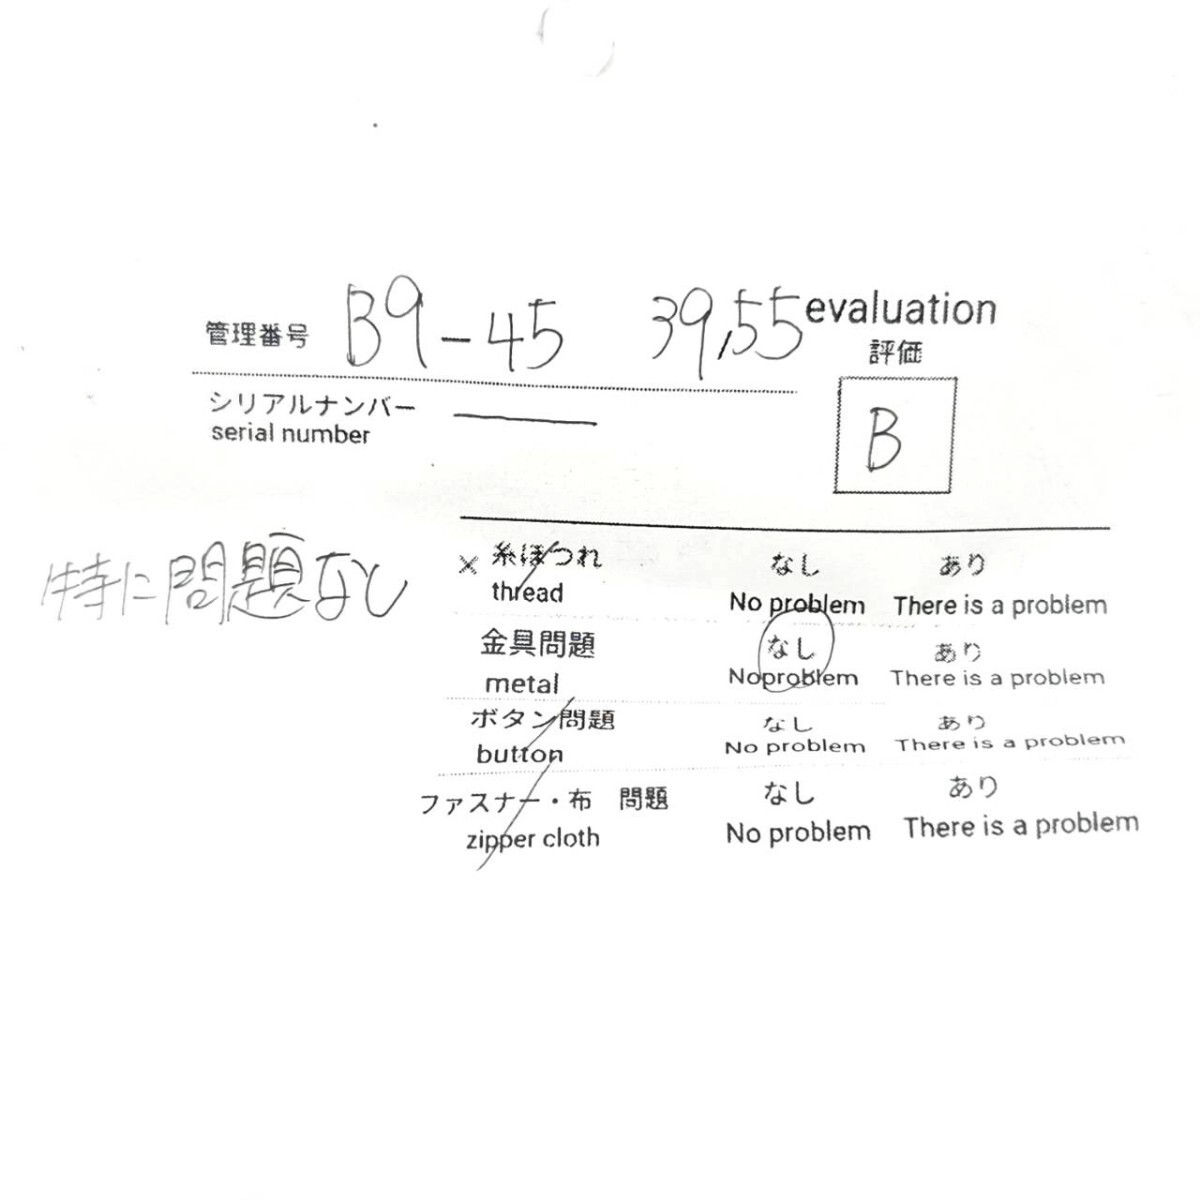 管理番号 B9-45 39,55
evaluation
評価
B
シリアルナンバー
serial number
特に問題なし
× 糸ほつれ なし あり
thread No problem There is a problem
金具問題 なし あり
metal Noproblem There is a problem
ボタン問題 なし あり
button No problem There is a problem
ファスナー・布 問題 なし あり
zipper cloth No problem There is a problem